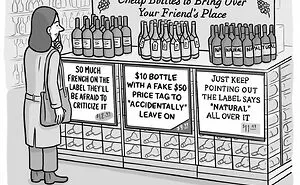 Cheap Bottles to Bring Over
Your Friend's Place
SO MUCH
FRENCH ON
THE LABEL THEY'LL
BE AFRAID TO
CRITICIZE IT
$10 BOTTLE
WITH A FAKE $50
PRICE TAG TO
"ACCIDENTALLY"
LEAVE ON
JUST KEEP
POINTING OUT
THE LABEL SAYS
"NATURAL"
ALL OVER IT